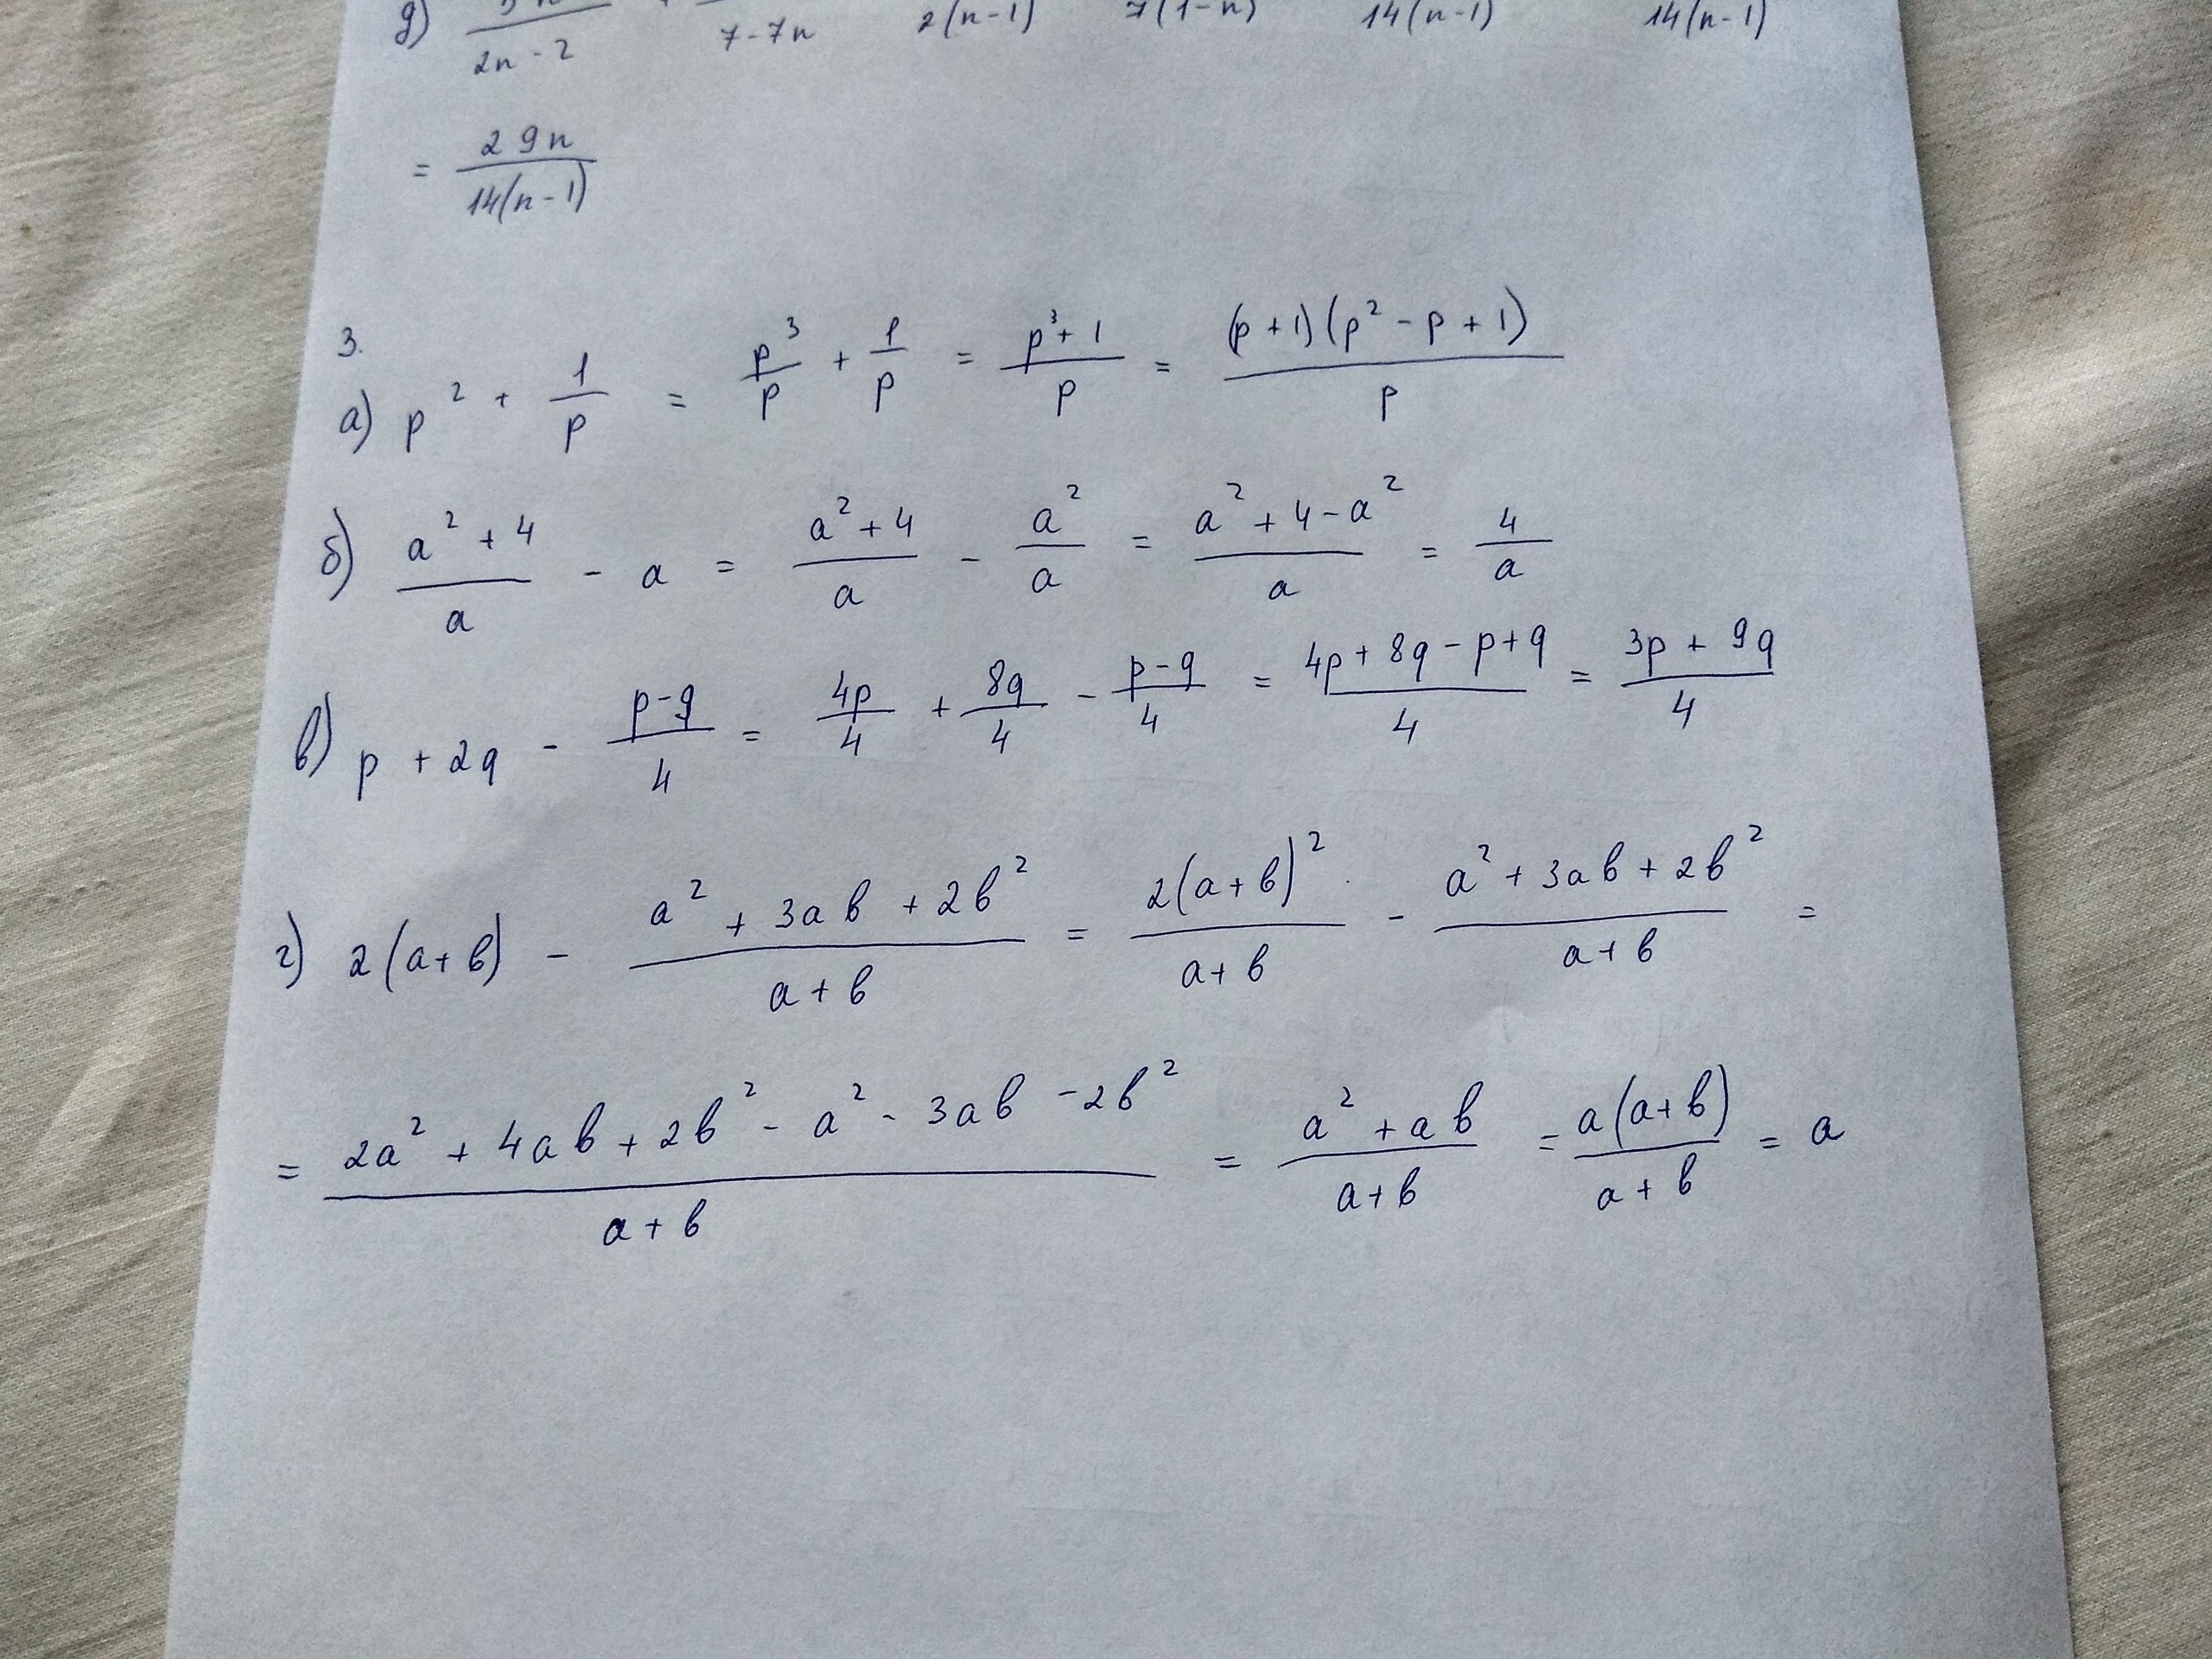 д) /(2n-2) /(7-7n) /(2(n-1)) /(7(1-n)) /(14(n-1)) /(14(n-1))
= 29n/(14(n-1))
3.
а) p² + 1/p = p³/p + 1/p = (p³+1)/p = (p+1)(p²-p+1)/p
б) (a²+4)/a - a = (a²+4)/a - a²/a = (a²+4-a²)/a = 4/a
в) p + 2q - (p-q)/4 = 4p/4 + 8q/4 - (p-q)/4 = (4p+8q-p+q)/4 = (3p+9q)/4
г) 2(a+b) - (a²+3ab+2b²)/(a+b) = 2(a+b)²/(a+b) - (a²+3ab+2b²)/(a+b) =
= (2a²+4ab+2b²-a²-3ab-2b²)/(a+b) = (a²+ab)/(a+b) = a(a+b)/(a+b) = a